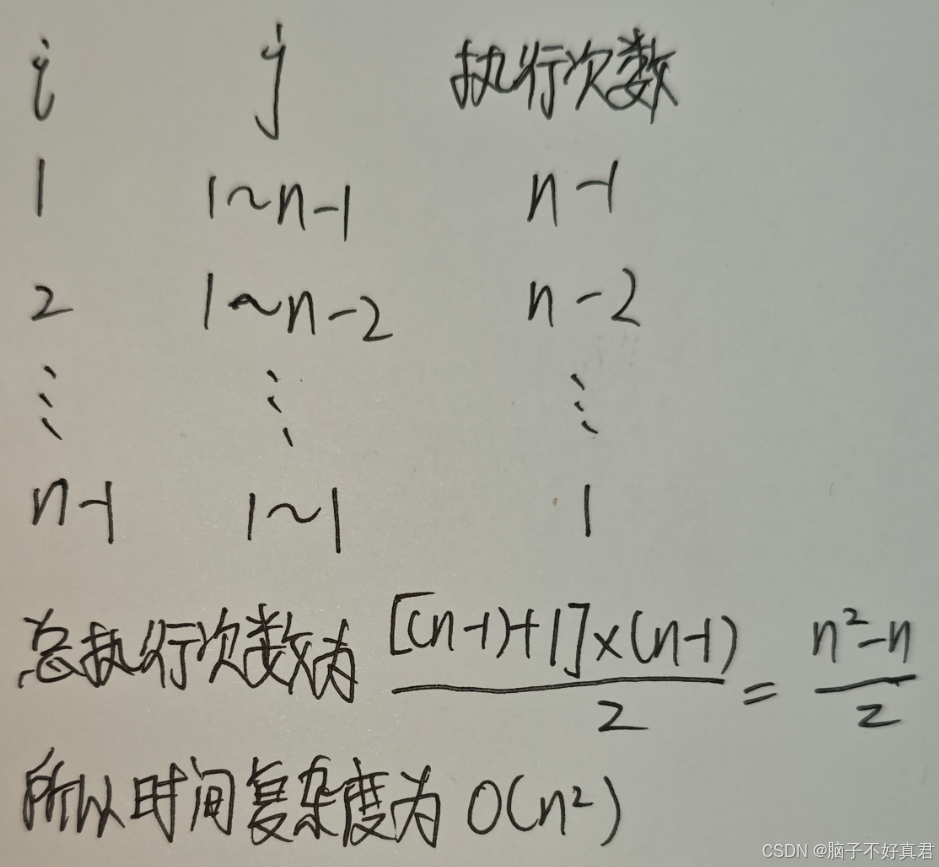 i j 执行次数
1 1~n-1 n-1
2 1~n-2 n-2
⋮ ⋮ ⋮
n-1 1~1 1
总执行次数为 [(n-1)+1]×(n-1)/2 = n²-n/2
所以时间复杂度为 O(n²)
CSDN @脑子不好真君